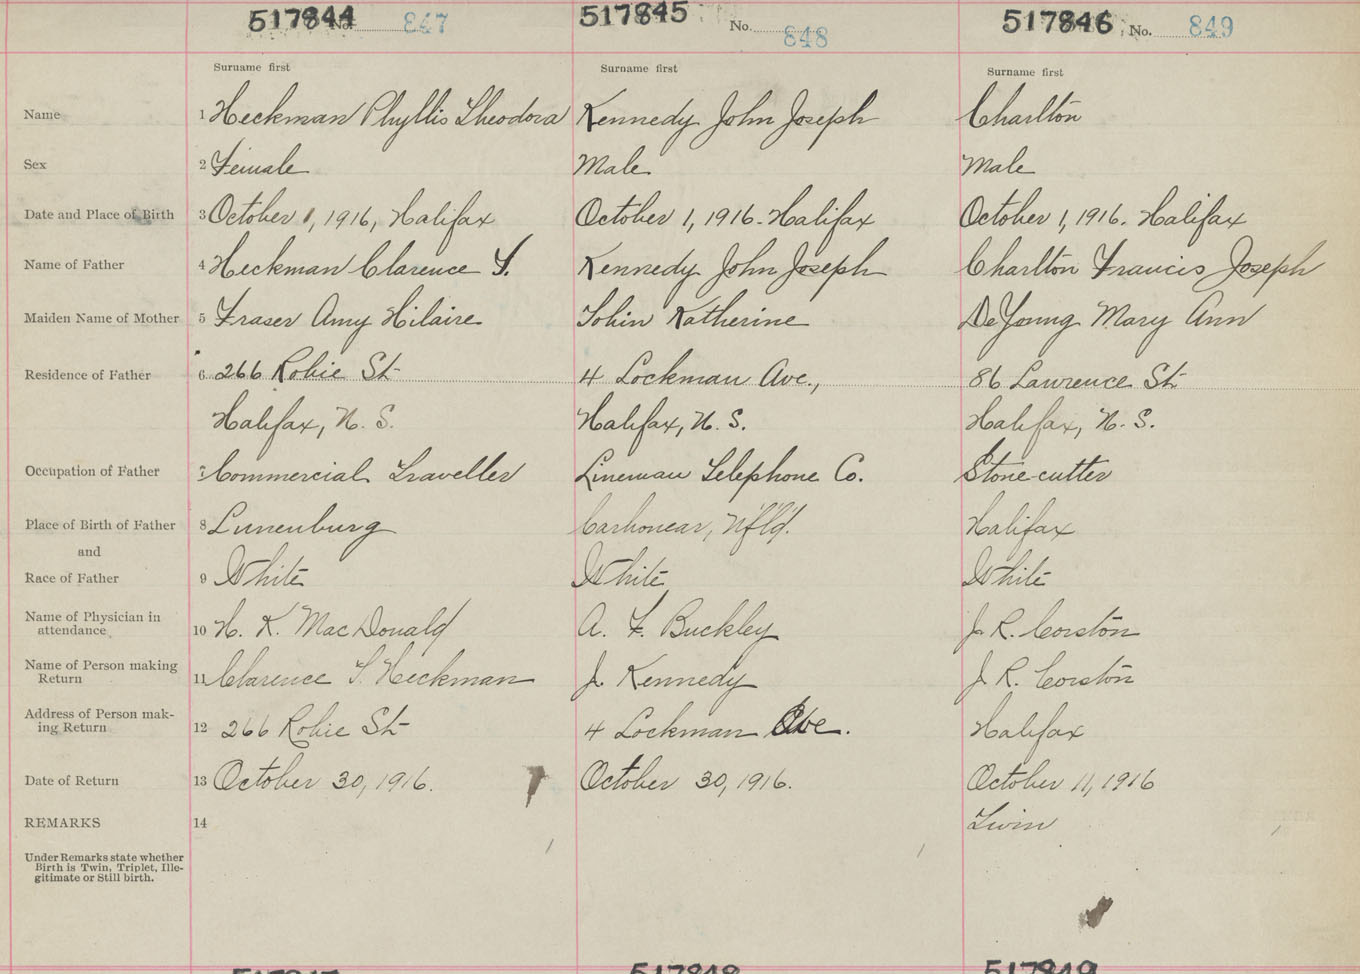 517844 No. 847 517845 No. 848 517846 No. 849
Surname first Surname first Surname first
Name 1 Heckman Phyllis Theodora Kennedy John Joseph Charlton
Sex 2 Female Male Male
Date and Place of Birth 3 October 1, 1916, Halifax October 1, 1916 - Halifax October 1, 1916. Halifax
Name of Father 4 Heckman Clarence S. Kennedy John Joseph Charlton Francis Joseph
Maiden Name of Mother 5 Fraser Amy Hilaire Tobin Katherine DeYoung Mary Ann
Residence of Father 6 266 Robie St 4 Lockman Ave., 86 Lawrence St
Halifax, N. S. Halifax, N. S. Halifax, N. S.
Occupation of Father 7 Commercial Traveller Lineman Telephone Co. Stone-cutter
Place of Birth of Father 8 Lunenburg Carbonear, Nfld. Halifax
and
Race of Father 9 White White White
Name of Physician in
attendance 10 H. K. MacDonald A. F. Buckley J. R. Corston
Name of Person making
Return 11 Clarence S. Heckman J. Kennedy J. R. Corston
Address of Person mak-
ing Return 12 266 Robie St 4 Lockman Ave. Halifax
Date of Return 13 October 30, 1916. October 30, 1916. October 11, 1916
REMARKS 14 Twin
Under Remarks state whether
Birth is Twin, Triplet, Ille-
gitimate or Still birth.